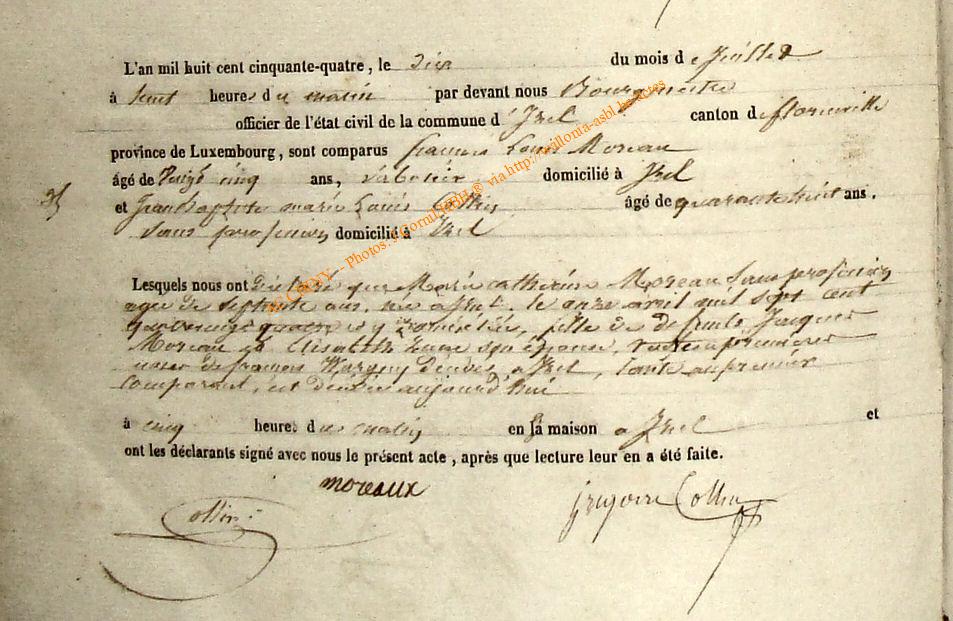 L'an mil huit cent cinquante-quatre, le dix du mois d e Juillet
à sept heures d u matin par devant nous Bourgmestre
officier de l'état civil de la commune d' Izel canton d e florenville
province de Luxembourg, sont comparus françois Louis Moreau
âgé de cinq ans, domicilié à Izel
et Jean Baptiste marie Louis Collin âgé de quarante huit ans.
Sans profession domicilié à Izel
Lesquels nous ont déclaré que Marie catherine Moreau Sans profession
agée de septante ans, née a Izel, le onze avril mil sept cent
quatre vingt quatre et y domiciliée, fille de defunts Jacques
Moreau et Elisabeth son épouse,
de francois Wargny décédé a Izel, tante au premier
comparant, est décédée aujourd'hui
à cinq heures d u matin en sa maison a Izel et
ont les déclarants signé avec nous le présent acte, après que lecture leur en a été faite.
moreaux
Collin
Grégoire Collin